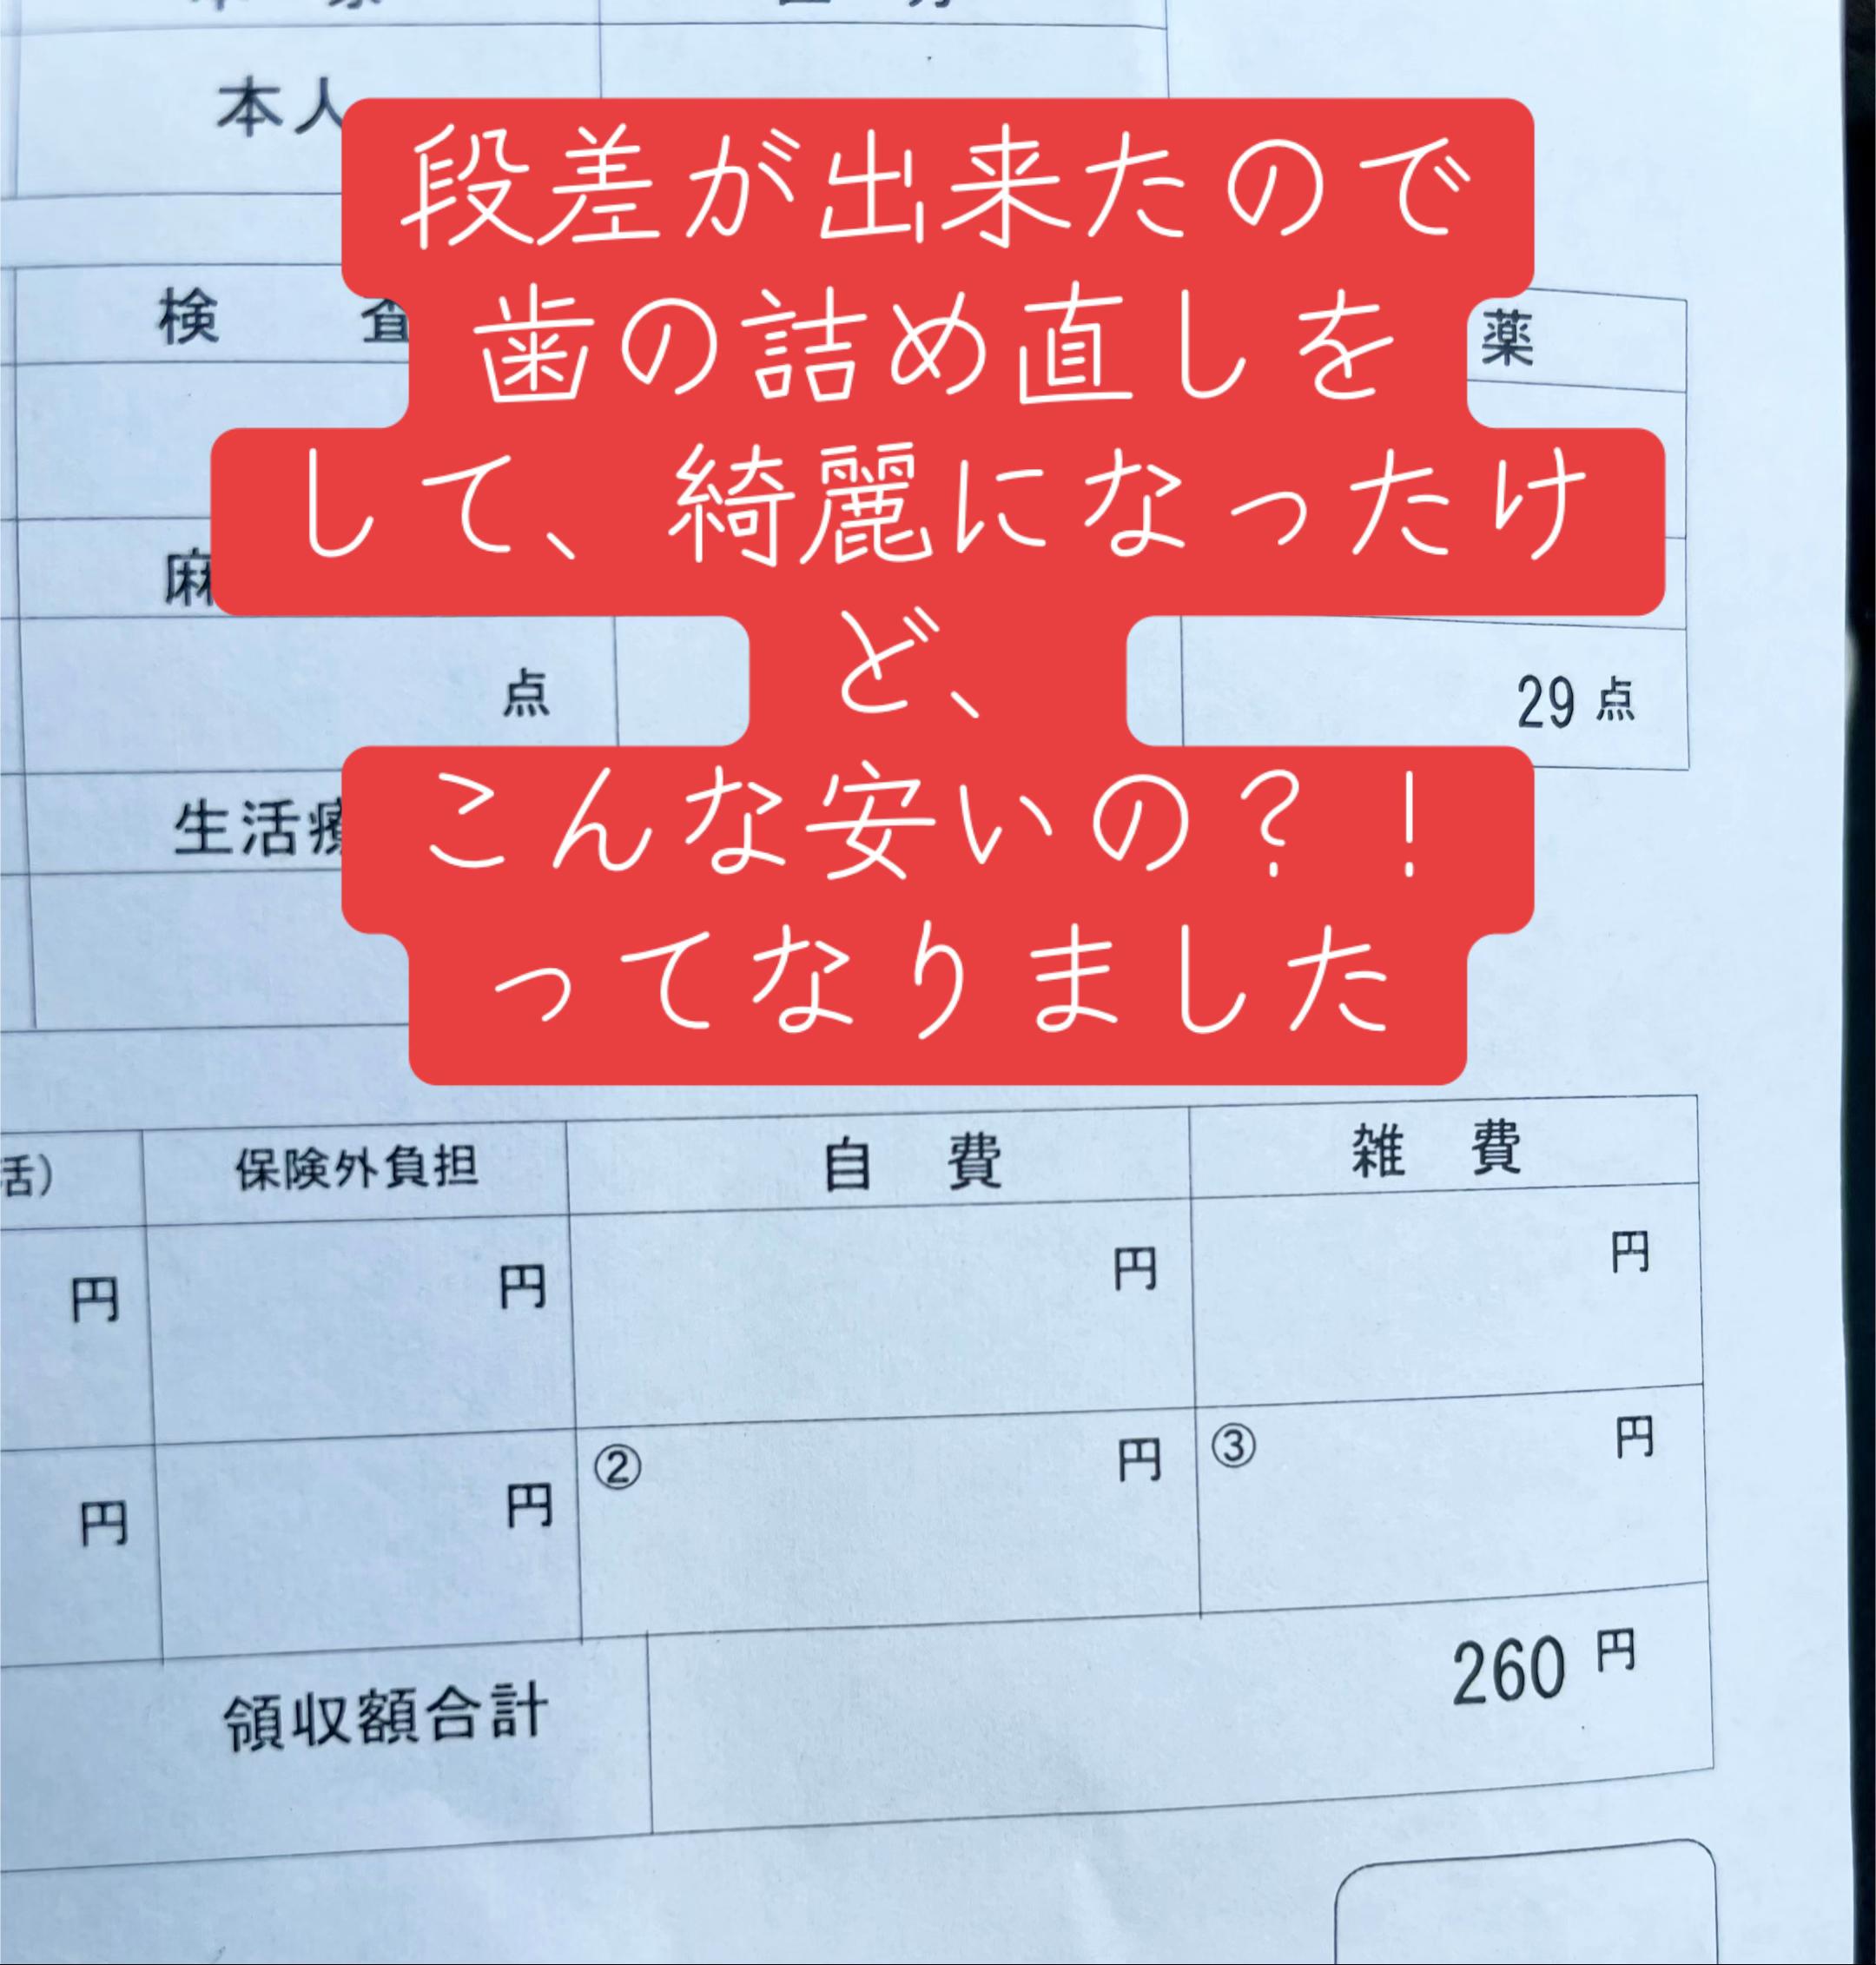 本人
段差が出来たので
歯の詰め直しを
して、綺麗になったけ
ど、
こんな安いの？！
ってなりました
検
薬
点
29 点
生活
活)
保険外負担
自 費
雑 費
円
円
円
円
円
円
② 円
③ 円
領収額合計
260 円